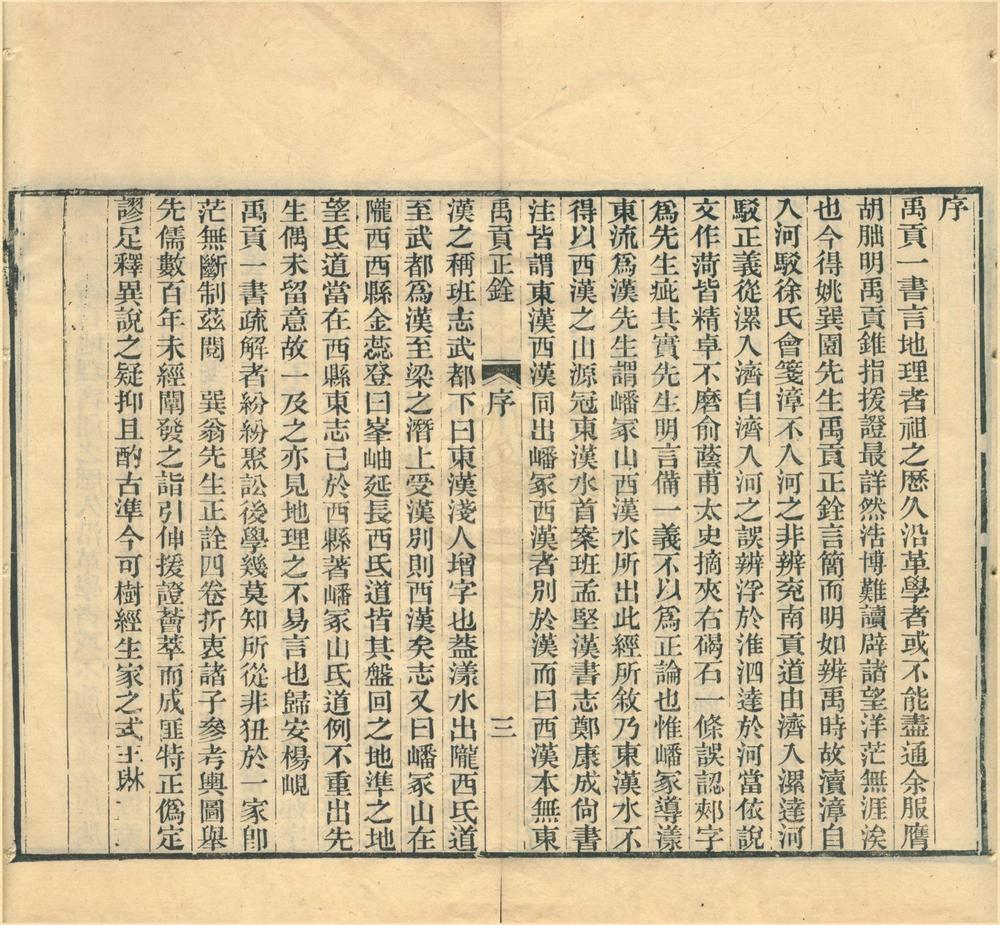 序
禹貢一書言地理者祖之歷久沿革學者或不能盡通余服膺
胡朏明禹貢錐指援證最詳然浩博難讀辟諸望洋茫無涯涘
也今得姚巽園先生禹貢正銓言簡而明如辨禹時故瀆漳自
入河駁徐氏會箋漳不入河之非辨兖南貢道由濟入漯達河
駁正義從漯入濟自濟入河之誤辨浮於淮泗達於河當依說
文作菏皆精卓不磨俞蔭甫太史摘夾右碣石一條誤認郟字
爲先生疵其實先生明言備一義不以爲正論也惟嶓冢導漾
東流爲漢先生謂嶓冢山西漢水所出此經所敘乃東漢水不
得以西漢之山源冠東漢水首案班孟堅漢書志鄭康成尙書
注皆謂東漢西漢同出嶓冢西漢者別於漢而曰西漢本無東
禹貢正銓 序 三
漢之稱班志武都下曰東漢淺人增字也蓋漾水出隴西氐道
至武都爲漢至梁之潛上受漢別則西漢矣志又曰嶓冢山在
隴西西縣金蕊登曰峯岫延長西氐道皆其盤回之地準之地
望氐道當在西縣東志已於西縣著嶓冢山氐道例不重出先
生偶未留意故一及之亦見地理之不易言也歸安楊峴
禹貢一書疏解者紛紛聚訟後學幾莫知所從非狃於一家卽
茫無斷制茲閱 巽翁先生正詮四卷折衷諸子參考輿圖舉
先儒數百年未經闡發之詣引伸援證薈萃而成匪特正僞定
謬足釋異說之疑抑且酌古準今可樹經生家之式王琳